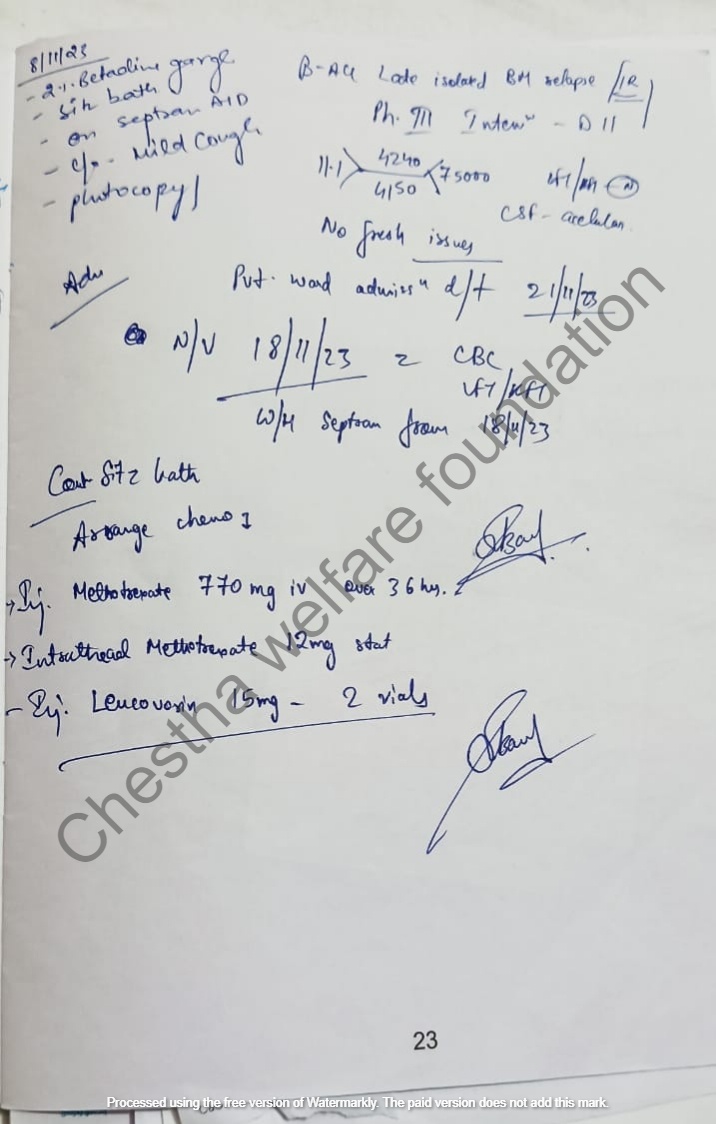 8/11/23
- 2%. Betadine gargle
- Sitz bath
- on septran AID
- c/o - Mild Cough
- photocopy
B-ALL Late isolated BM relapse / IR
Ph. III Intenⁿ - D11
11.1 4240 75000
4150
LFT/KFT - N
CSF - acellular
No fresh issues
Adv
Pvt. ward admissⁿ d/t 21/11/23
N/V 18/11/23 c CBC
LFT/KFT
W/H Septran from 18/11/23
Cont Sitz bath
Arrange chemo
→ Inj. Methotrexate 770 mg iv over 36 hrs.
→ Intrathecal Methotrexate 12mg stat
- Inj. Leucovorin 15mg - 2 vials
Chestha welfare foundation
23
Processed using the free version of Watermarkly. The paid version does not add this mark.